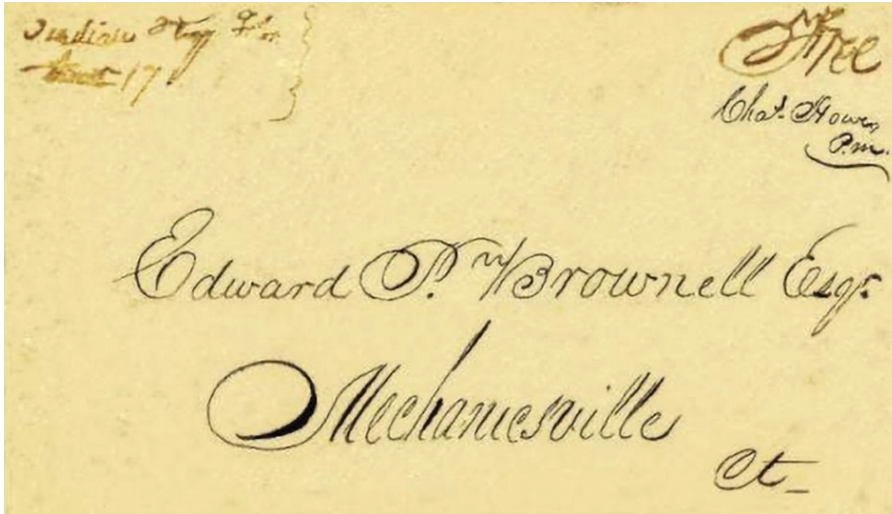 Indian Key Flor
17
Free
Chas. Howe
P.m.
Edward P. Brownell Esqr.
Mechanicsville
Ct